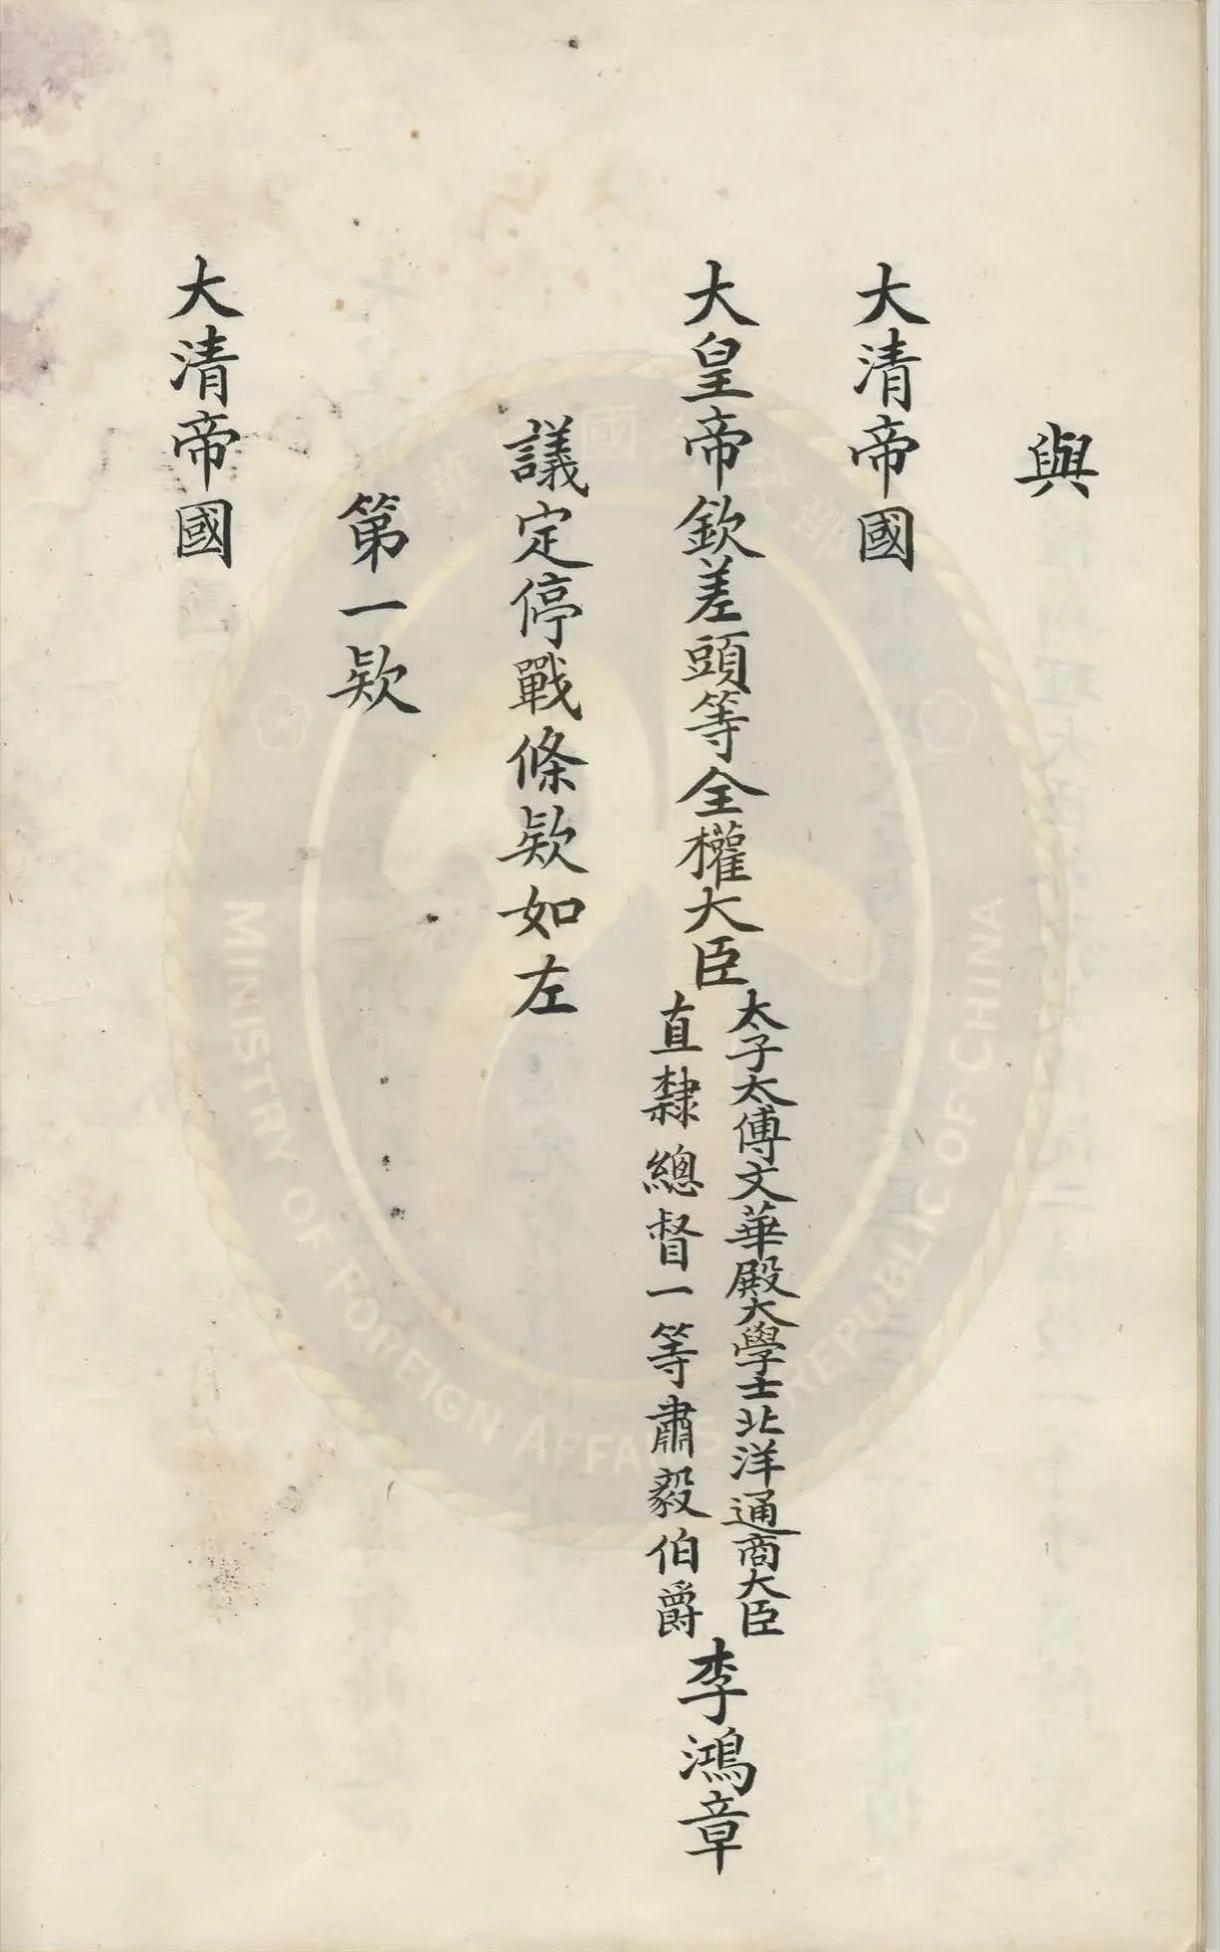 與
大清帝國
大皇帝欽差頭等全權大臣
太子太傅文華殿大學士北洋通商大臣
直隸總督一等肅毅伯爵
李鴻章
議定停戰條欵如左
第一欵
大清帝國
MINISTRY OF FOREIGN AFFAIRS REPUBLIC OF CHINA